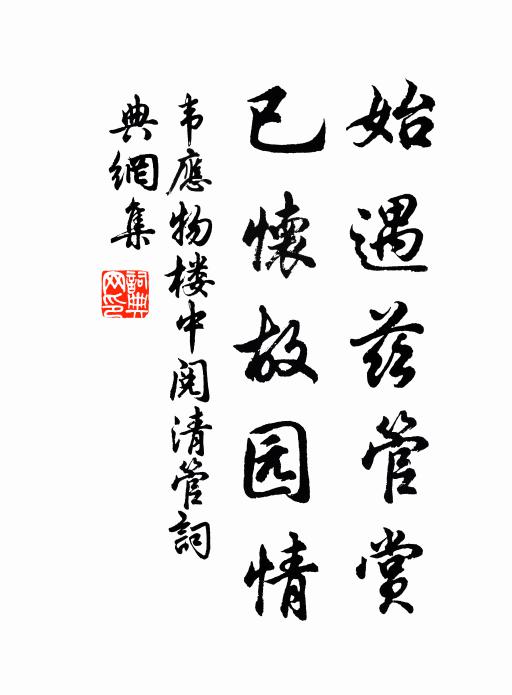 始遇兹管赏
已懷故园情
韦應物楼中阅清管詞
典網集
詞典网印